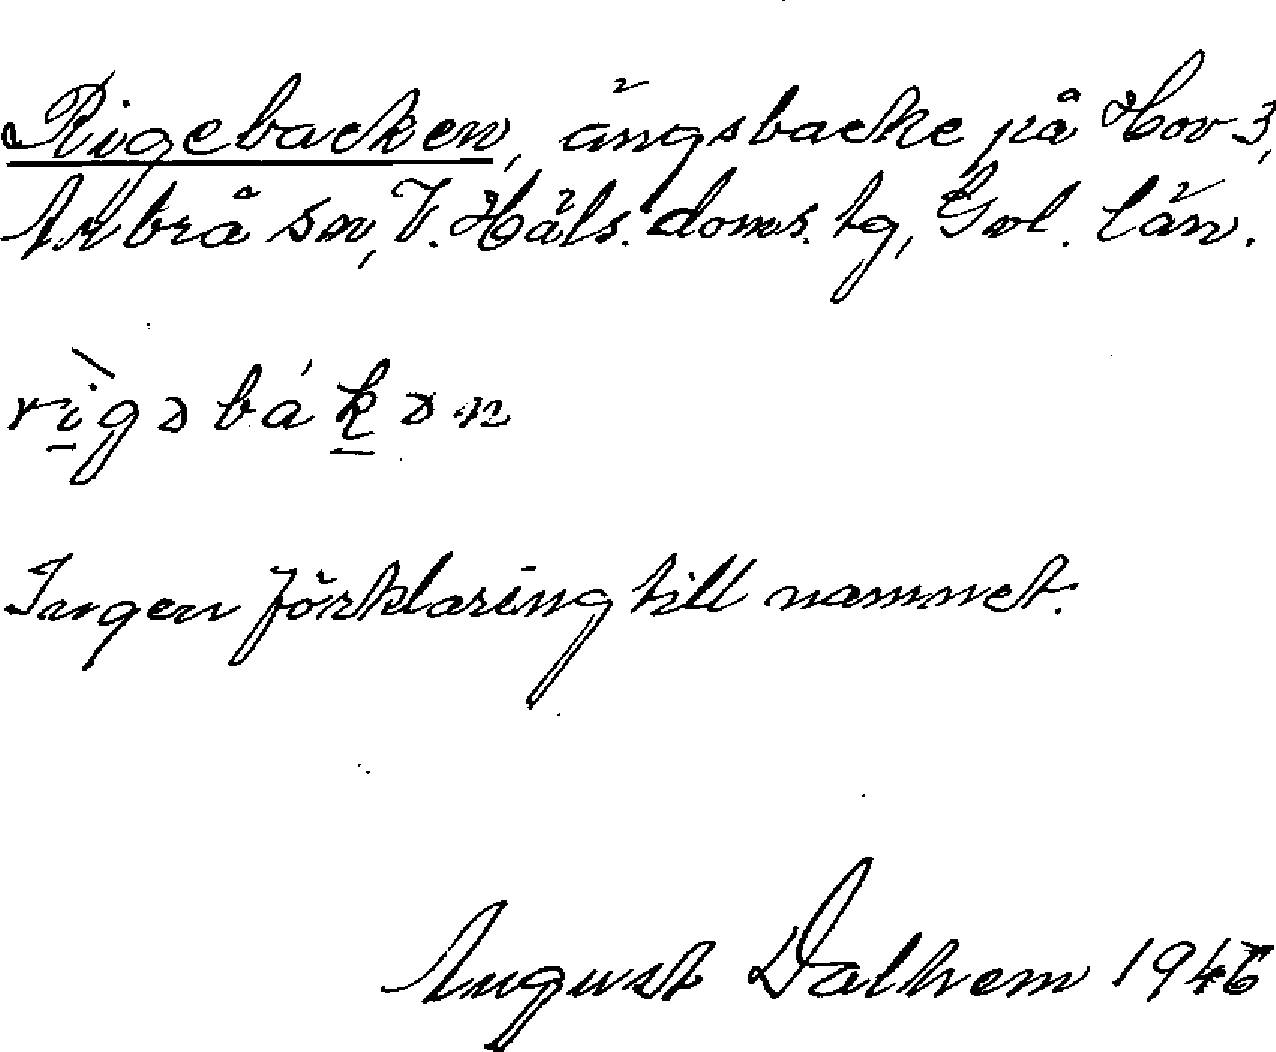 Rigebacken, ängsbacke på Hov 3,
Arbrå sn, V. Häls. doms. tg, Gvl. län.
rìgəbákən
Ingen förklaring till namnet.
August Dalhem 1945